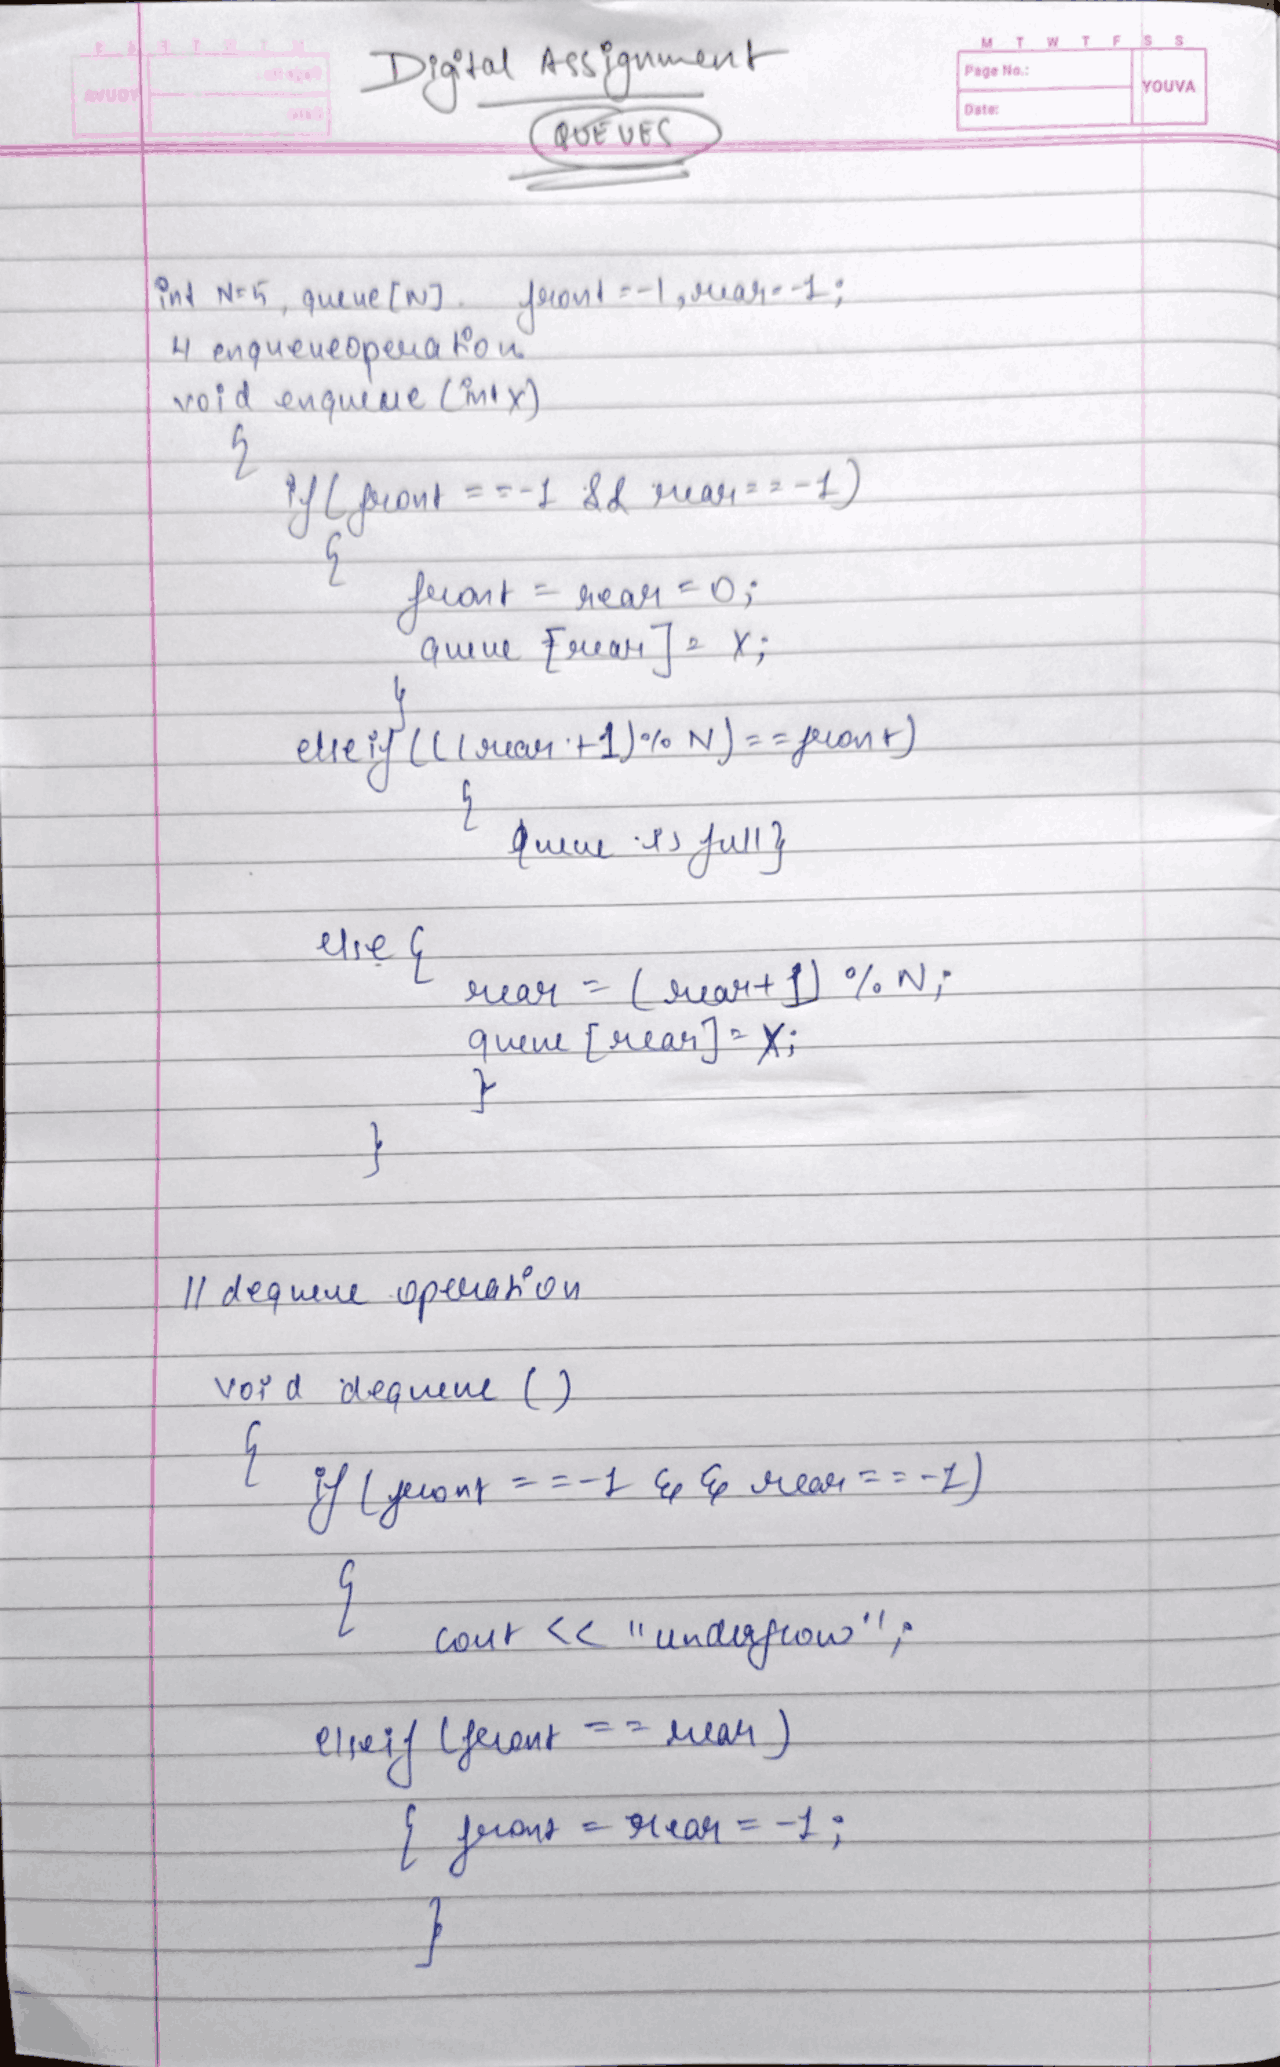 Digital Assignment
QUEUES
M T W T F S S
Page No.:
Date:
YOUVA
int N=5, queue[N]. front =-1, rear=-1;
// enqueueoperation
void enqueue (int x)
{
if( front ==-1 && rear==-1)
{
front = rear = 0;
queue [rear] = x;
}
else if(((rear+1)% N)==front)
{
queue is full}
else {
rear = (rear+1) % N;
queue [rear] = x;
}
}
// dequeue operation
void dequeue ()
{
if (front ==-1 && rear ==-1)
{
cout << "underflow";
elseif (front == rear)
{ front = rear = -1;
}